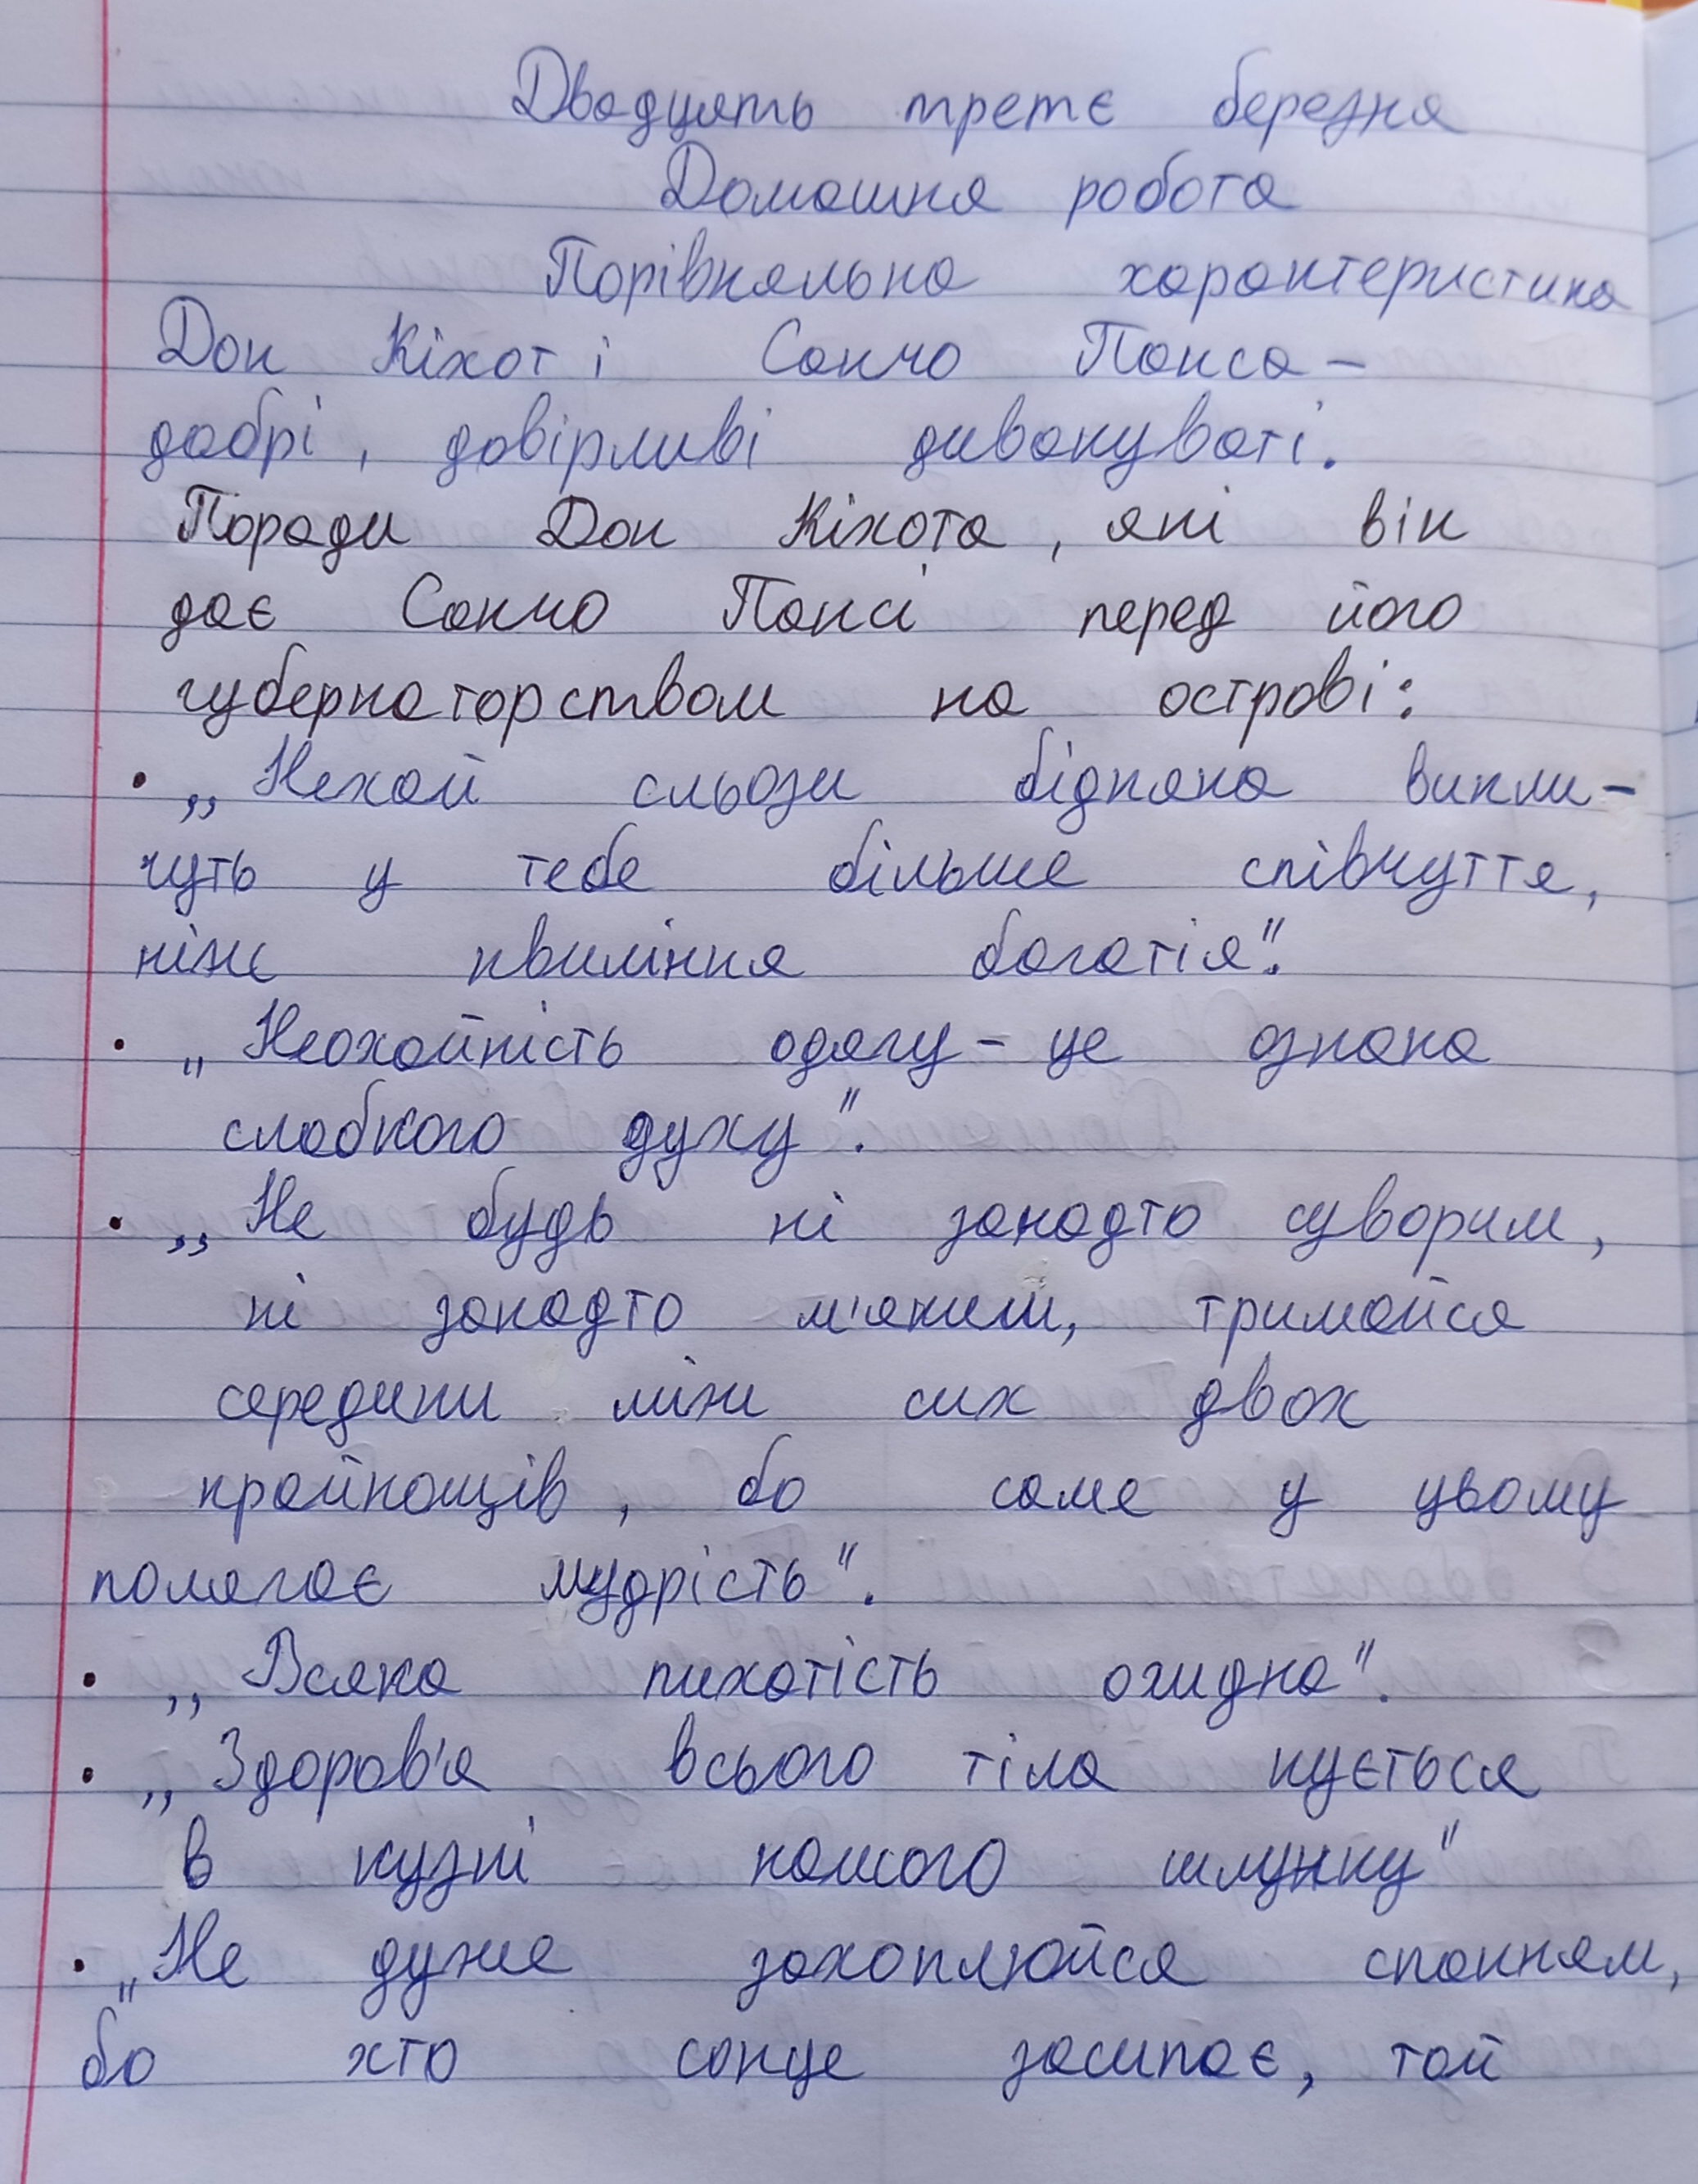 Двадцять третє березня
Домашня робота
Порівняльна характеристика
Дон Кіхот і Санчо Панса –
добрі, довірливі дивакуваті.
Поради Дон Кіхота, які він
дає Санчо Пансі перед його
губернаторством на острові:
• „Нехай сльози бідняка викли-
чуть у тебе більше співчуття,
ніж квиління багатія".
• „Неохайність одягу – це ознака
слабкого духу".
• „Не будь ні занадто суворим,
ні занадто м'яким, тримайся
середини між сих двох
крайнощів, бо саме у цьому
полягає мудрість".
• „Всяка пихатість огидна".
• „Здоров'я всього тіла кується
в кузні нашого шлунку"
• „Не дуже захоплюйся спанням,
бо хто сонце засипає, той